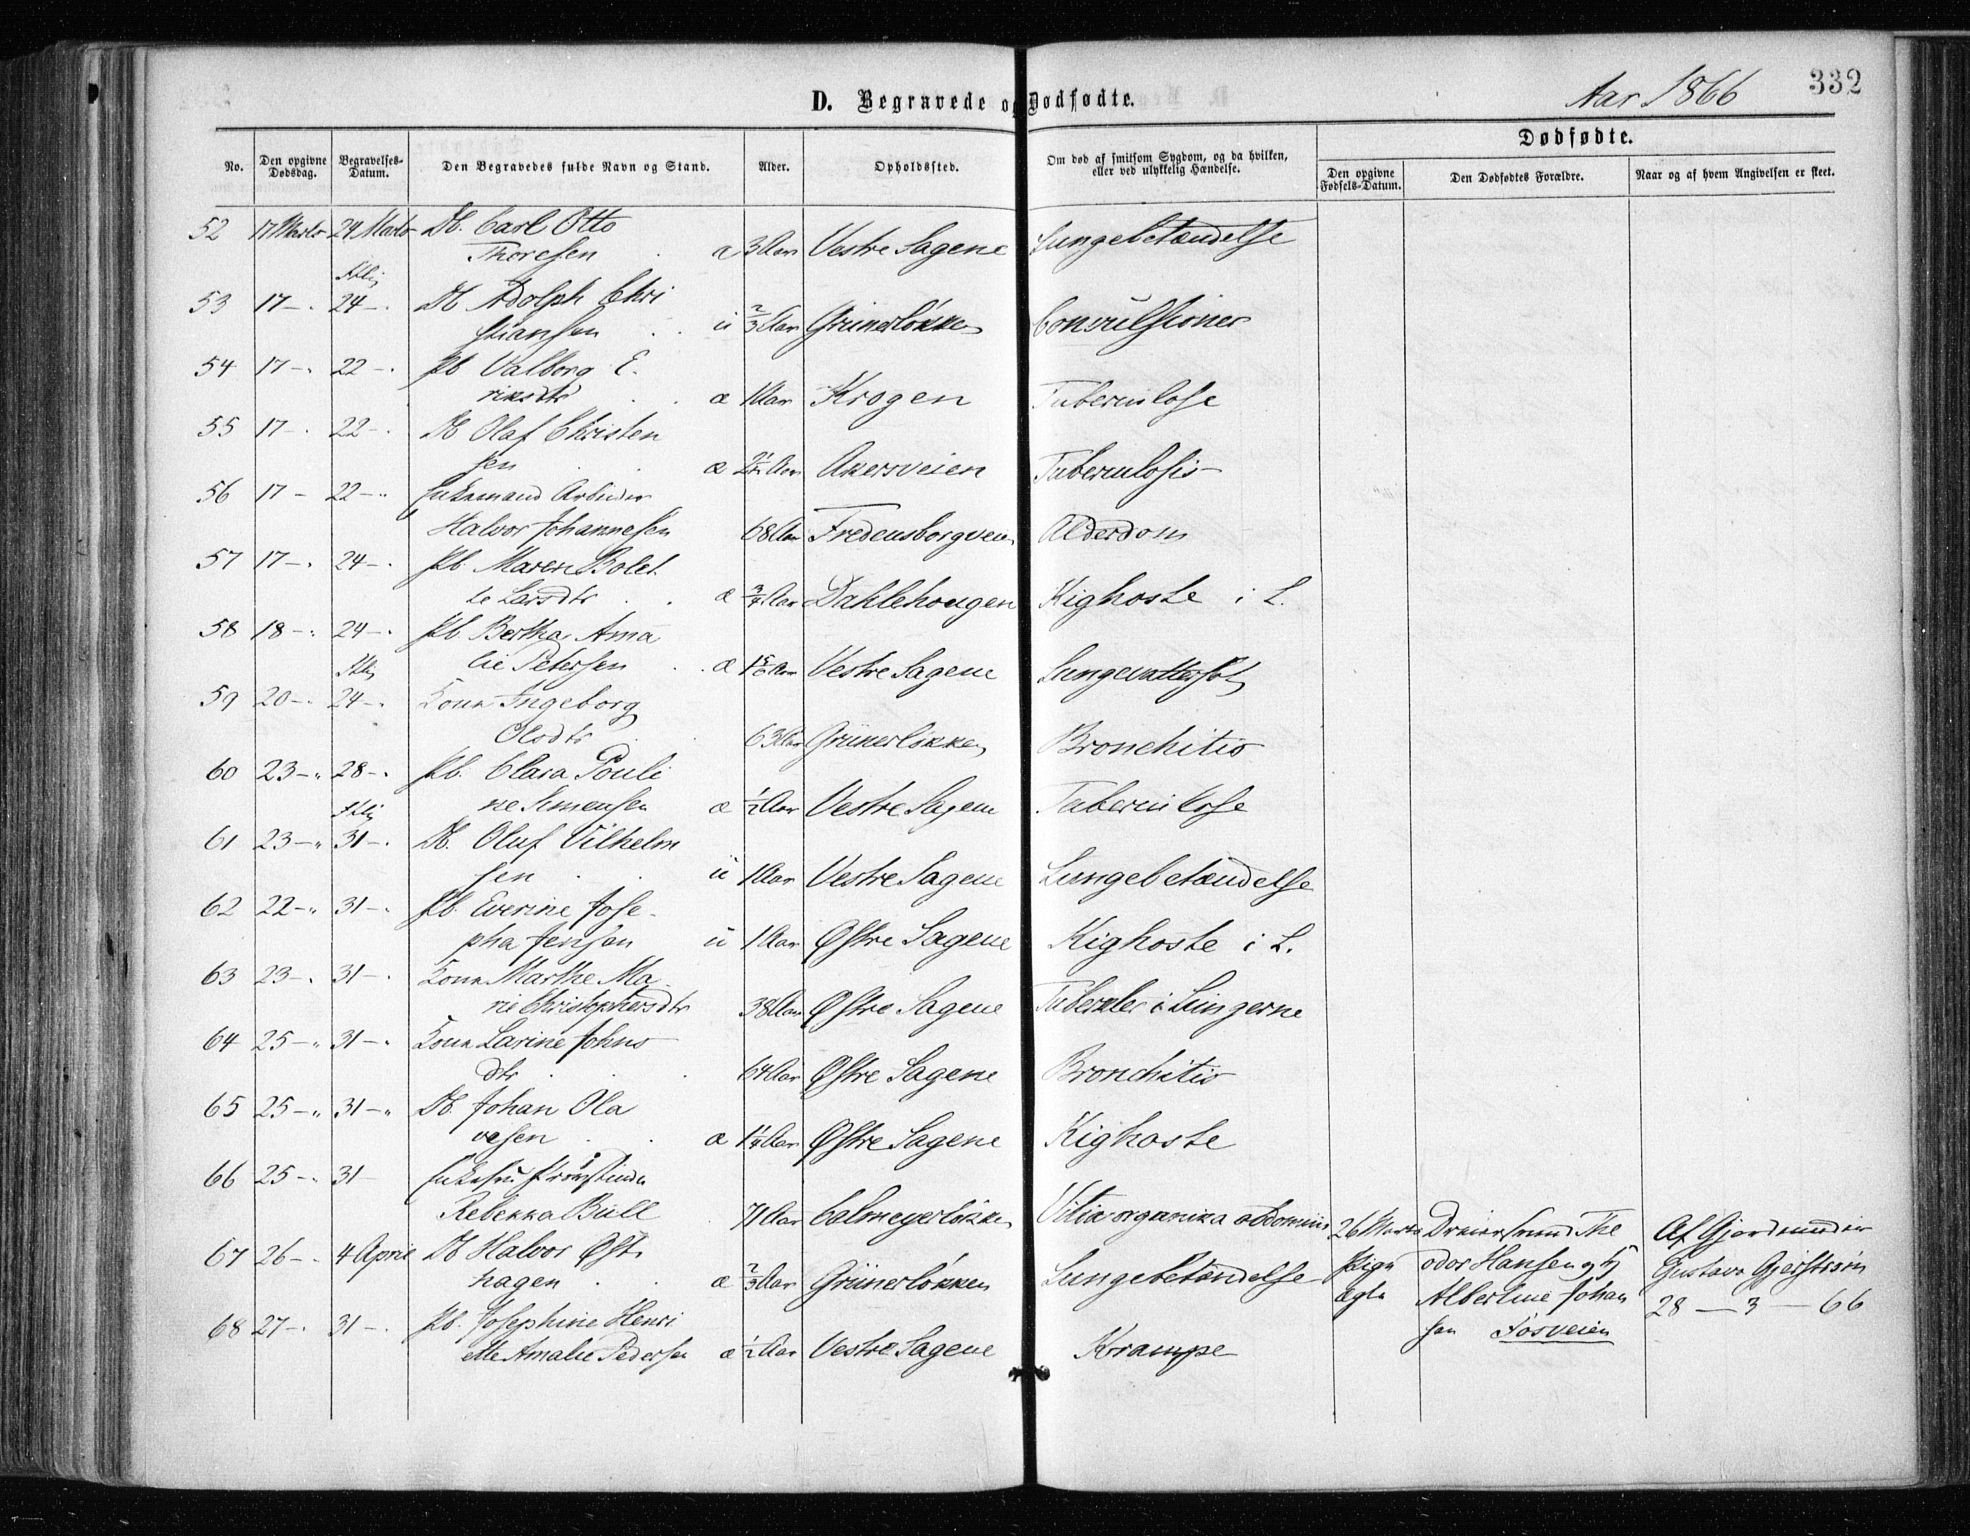 332
D. Begravede og Dødfødte. Aar 1866
Dødfødte.
No. Den opgivne Dødsdag. Begravelses-Datum. Den Begravedes fulde Navn og Stand. Alder. Opholdssted. Om død af smitsom Sygdom, og da hvilken, eller ved ulykkelig Hændelse. Den opgivne Fødsels-Datum. Den Dødfødtes Forældre. Naar og af hvem Angivelsen er skeet.
52 17 Marts 24 Marts Db. Carl Otto
Thoresen æ 3 Aar Vestre Sagene Lungebetændelse
53 17 — 24 — Db Adolph Chri
stiansen ü 2/3 Aar Grünerløkken Convulsioner
54 17 — 22 — Pb Valborg E.
riksdtr æ 1 Aar Krogen Tuberculose
55 17 — 22 — Db Olaf Christen
sen æ 2 1/2 Aar Akersveien Tuberculosis
56 17 — 22 — Enkemand Arbeider
Halvor Johannesen 68 Aar Fredensborgveien Alderdom
57 17 — 24 — Pb Maren Bolet
te Larsdtr æ 3/4 Aar Dahlehougen Kighoste i L.
58 18 — 24 — Pb Bertha Ama
lie Petersen æ 1 5/6 Aar Vestre Sagene Lungevattersot
59 20 — 24 — Kone Ingeborg
Olsdtr 63 Aar Grünerløkken Bronchitis
60 23 — 28 — Pb. Clara Pouli
ne Simensen æ 1/2 Aar Vestre Sagene Tuberculose
61 23 — 31 — Db. Oluf Vilhelm
sen ü 1 Aar Vestre Sagene Lungebetændelse
62 22 — 31 — Pb. Everine Jose-
pha Jensen ü 1 Aar Østre Sagene Kighoste i L.
63 23 — 31 — Kone Marthe Ma-
rie Christophersdtr 38 Aar Østre Sagene Tuberkler i Lungerne
64 25 — 31 — Kone Larine Johns
dtr 64 Aar Østre Sagene Bronchitis
65 25 — 31 — Db Johan Ola
vesen æ 1 1/4 Aar Østre Sagene Kighoste
66 25 — 31 —
Rebekka Bull 71 Aar Calmeyerløkken Vitia organica abdominis 26 Marts Dreiersvend The Af Gjordemoder
67 26 — 4 April Db Halvor Øst
hagen æ 2/3 Aar Grünerløkken Lungebetændelse Pige odor Hansen og Gustava
68 27 — 31 — Pb. Josephine Henri ægte Albertine Johan 28 — 3 — 66
ette Amalie Pedersen æ 1/2 Aar Vestre Sagene Krampe sen Fosveien